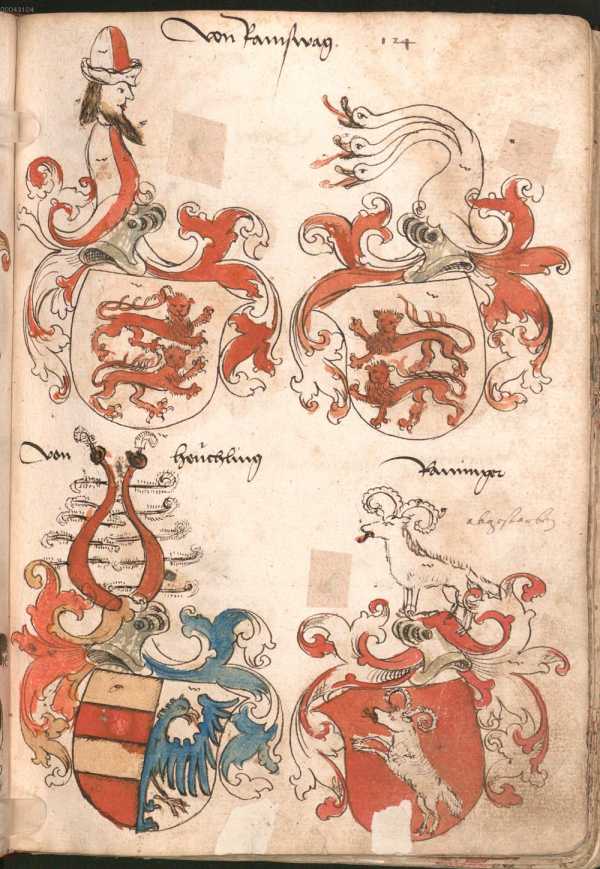 00043104
von Ramswag. 124
von heuchling
Raminger
abgestorben